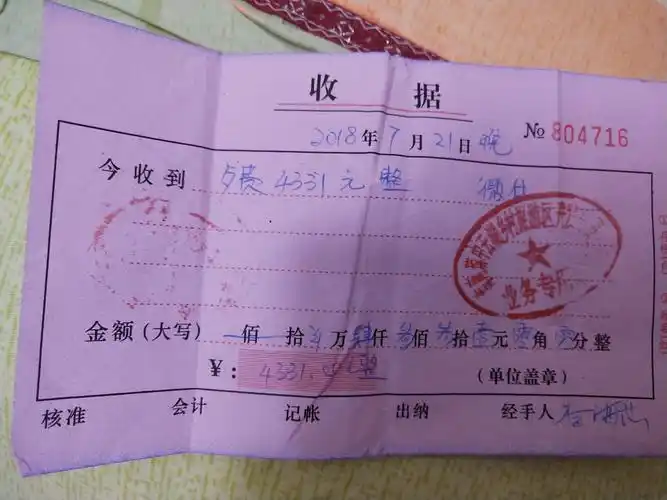 收据
2018年7月21日晚 № 804716
今收到 4331元整 微付
业务专用
金额(大写) 佰 拾 万肆仟叁佰叁拾壹元零角零分整
¥: 4331.00整
(单位盖章)
核准 会计 记帐 出纳 经手人